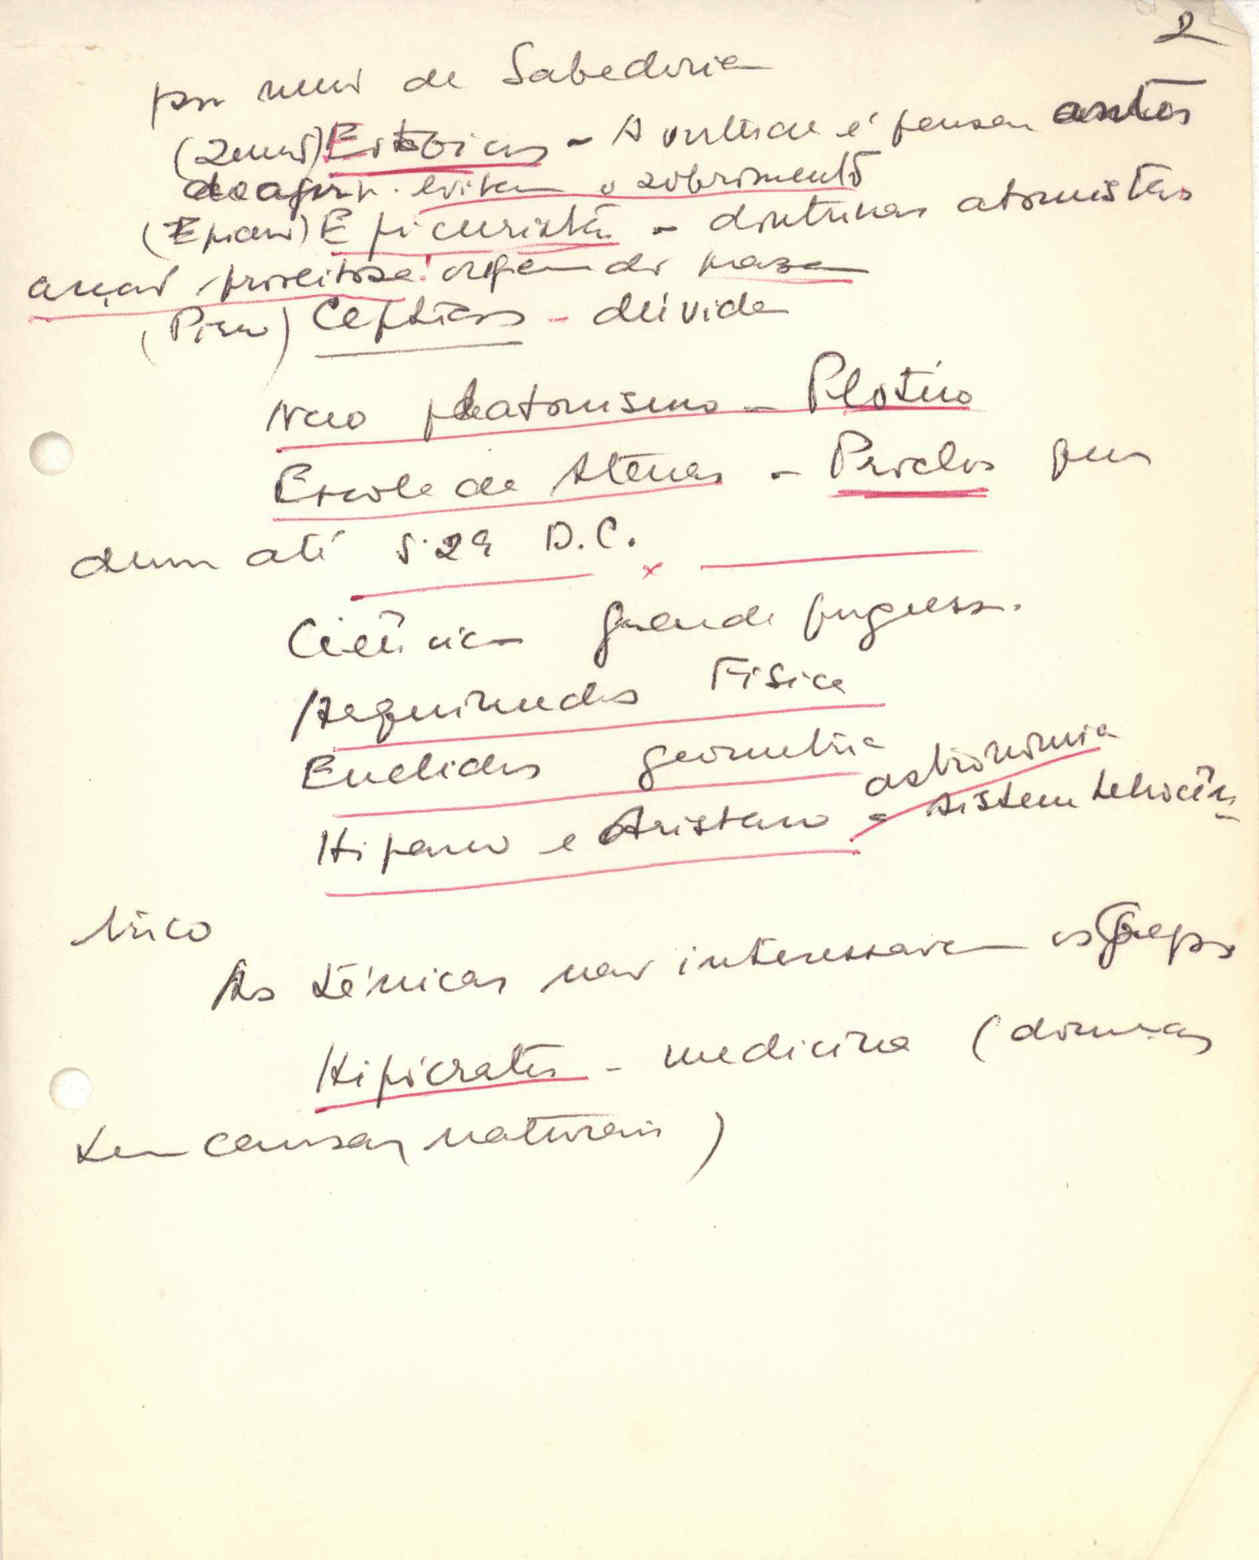 2
por meio de Sabedoria
(Zenão) Estóicos - A virtude é pensar antes
de agir. evitam o sofrimento
(Epicuro) Epicuristas - doutrinas atomistas
proveitosa! origem do prazer
(Pirro) Cepticos - dúvida
Neo platonismo - Plotino
Escola de Atenas - Proclos que
duram até 529 D.C.
Ciência grande progresso.
Arquimedes Física
Euclides geometria
astronomia
Hiparco e Aristarco - sistem heliocên
trico
As ténicas não interessavam os Gregos
Hipócrates - medicina (doenças
tem causas naturais)